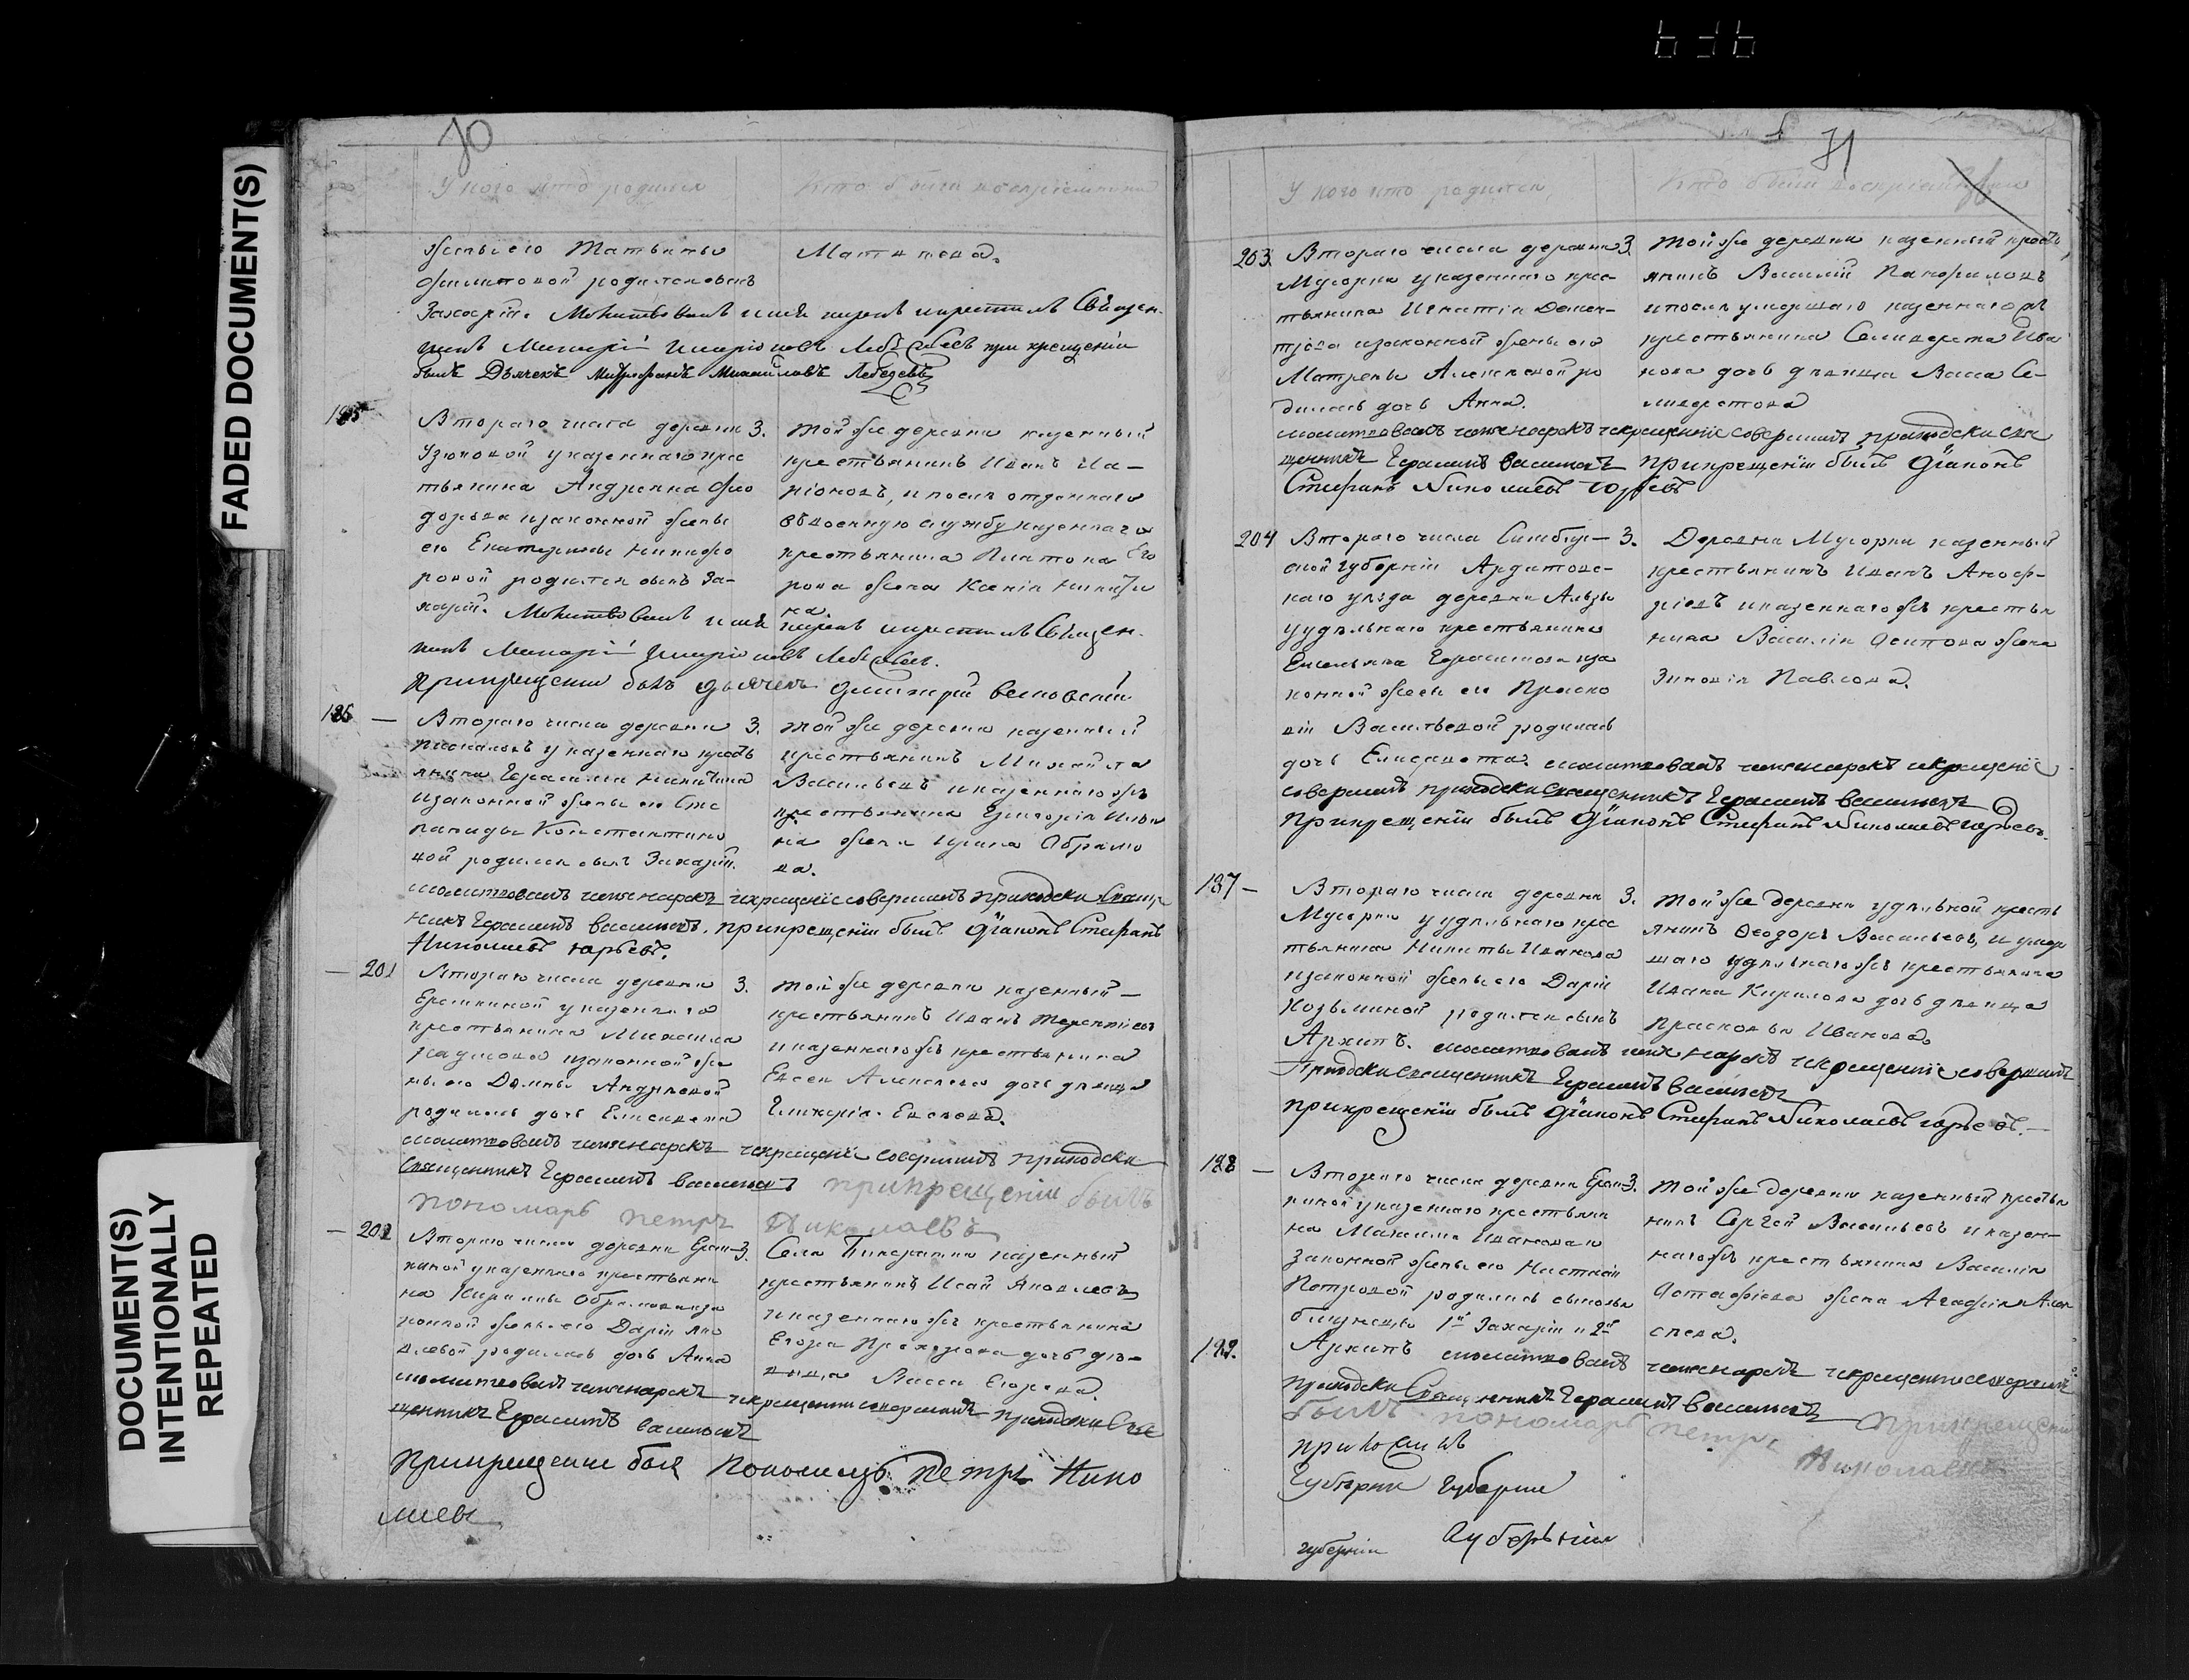 FADED DOCUMENT(S)
DOCUMENT(S)
INTENTIONALLY
REPEATED
70
У кого кто родился
Кто были восприемники
жены его Татьяны
Филиповой родился сынъ
Захарій. Молитвовалъ имя нарекъ и крестилъ Священ-
никъ Макарій Иларіоновъ Лебедевъ при крещеніи
былъ Дьячекъ Митрофанъ Михайловъ Лебедевъ
Матвеева.
185
Втораго числа деревни 3.
Узюковой у казеннаго крес
тьянина Андреяна Фео
дорова изаконной жены
его Екатерины Никифо
ровой родился сынъ За-
харій. Молитвовалъ имя нарекъ и крестилъ Священ-
никъ Макарій Иларіоновъ Лебедевъ.
При крещеніи былъ дьячекъ Димитрій
той же деревни казенный
крестьянинъ Иванъ Ла-
ріоновъ, и послѣ отданнаго
въ военную службу казеннаго
крестьянина Платона Его
рова жена Ксенія Никити
на.
186 —
Втораго числа деревни 3.
у казеннаго кресть
янина Герасима Никитина
изаконной жены его Сте
паниды Константино
вой родился сынъ Захарій.
молитвовалъ имя нарекъ и крещеніе совершилъ приходски Свяще
никъ Герасимъ Васильевъ. при крещеніи былъ Діаконъ Стефанъ
Николаевъ Юрьевъ.
той же деревни казенный
крестьянинъ Михайла
Васильевъ и казеннаго жъ
крестьянина Григорія Ильи
на жена Ирина Абрамо
ва.
— 201
Втораго числа деревни 3.
Еремкиной у казеннаго
крестьянина Михаила
Радионова изаконной же
ны его Домны Андреевой
родилась дочь Елисавета
молитвовалъ имя нарекъ и крещеніе совершилъ приходски
Священникъ Герасимъ Васильевъ при крещеніи былъ
пономарь петръ Николаевъ
той же деревни казенный —
крестьянинъ Иванъ Терентіевъ
и казеннаго жъ крестьянина
Евсея Алексеева дочь девица
Гликерія Евсеева.
— 202
Втораго числа деревни Ерем- 3.
киной у казеннаго крестьяни
на Кирилы Обрамова иза
конной жены его Дарьи Яко
влевой родилась дочь Анна
молитвовалъ имя нарекъ и крещеніе совершилъ приходски Свя
щенникъ Герасимъ Васильевъ
При крещеніи былъ Пономарь Петръ Нико
лаевъ
Села казенный
крестьянинъ Исай Яковлевъ
и казеннаго жъ крестьянина
Егора Прохорова дочь де-
вица Васса Егорова.
71
У кого кто родился
Кто были восприемники
203.
Втораго числа деревни 3.
Мусорки у казеннаго крес-
тьянина Игнатія Демен-
тьева изаконной жены его
Матрены Алексеевой ро
дилась дочь Анна.
молитвовалъ имя нарекъ и крещеніе совершилъ приходски свя
щенникъ Герасимъ Васильевъ при крещеніи былъ Діаконъ
Стефанъ Николаевъ Юрьевъ
той же деревни казенный кресть
янинъ Василій Панфиловъ
и после умершаго казеннаго жъ
крестьянина Селиверста Ива
нова дочь девица Васса Се-
ливерстова
204
Втораго числа Симбир- 3.
ской Губерніи Ардатовс-
каго уезда деревни
у удельнаго крестьянина
Емельяна Герасимова иза
конной жены его Праско
віи Васильевой родилась
дочь Елисавета. молитвовалъ имя нарекъ и крещеніе
совершилъ приходски Священникъ Герасимъ Васильевъ
При крещеніи былъ Діаконъ Стефанъ Николаевъ Юрьевъ.
Деревни Мусорки казенный
крестьянинъ Иванъ Аноф-
ріевъ и казеннаго жъ крестья
нина Василія Осипова жена
Зиновія Павлова.
187 —
Втораго числа деревни 3.
Мусорки у удельнаго крес
тьянина Никиты Иванова
изаконной жены его Дарьи
Козьминой родился сынъ
Архипъ. молитвовалъ имя нарекъ и крещеніе совершилъ
Приходски Священникъ Герасимъ Васильевъ
при крещеніи былъ Діаконъ Стефанъ Николаевъ Юрьевъ. —
той же деревни удельной кресть
янинъ Ѳеодоръ Васильевъ, и умер
шаго удельнаго жъ крестьянина
Ивана Кирилова дочь девица
Прасковья Иванова.
188 —
Втораго числа деревни Ерем- 3.
киной у казеннаго крестьяни
на Максима Иванова и
законной жены его Настасьи
Петровой родились сыновья
близнецы 1й Захарій и 2й
189.
Архипъ молитвовалъ имя нарекъ и крещеніе совершилъ
приходски Священникъ Герасимъ Васильевъ При крещеніи
былъ пономарь петръ Николаевъ
той же деревни казенный крестья
нинъ Сергей Васильевъ и казен-
наго жъ крестьянина Василія
Астафіева жена Агафія Алек
сеева.
Губерніи Губерніи
губерніи